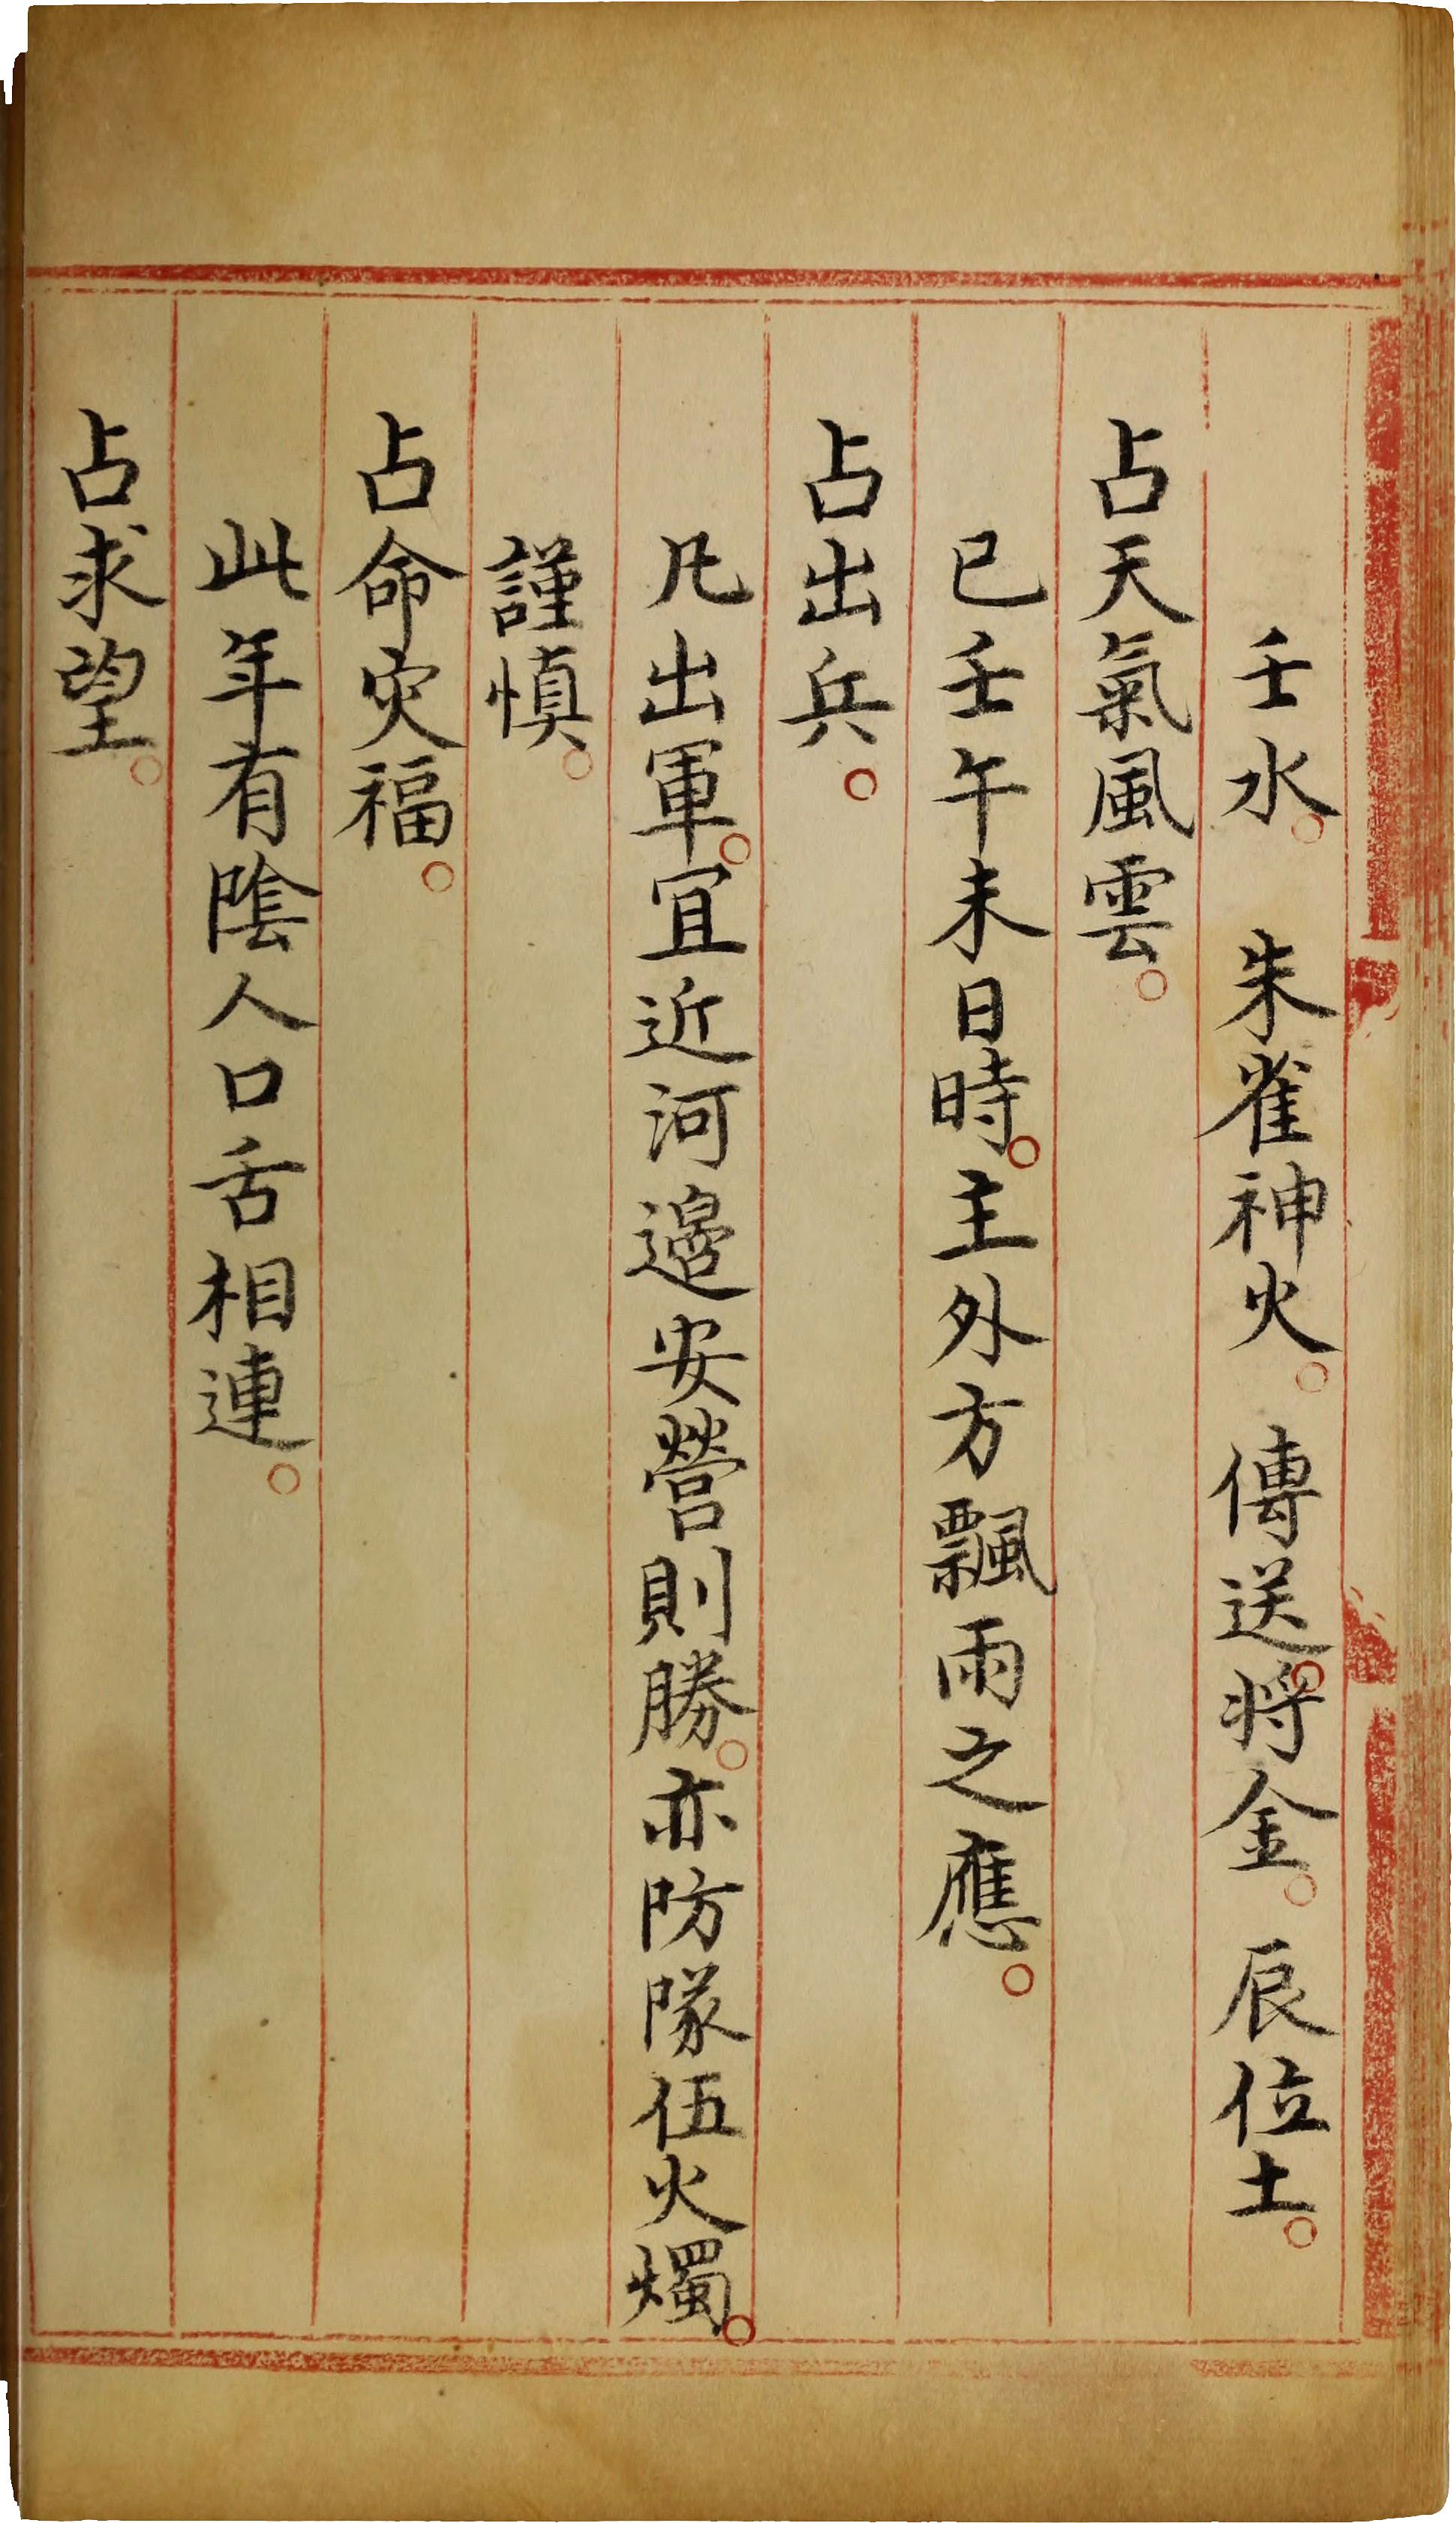 壬水。朱雀神火。傳送。將金。辰位土。
占天氣風雲。
已壬午未日時。主外方飄雨之應。
占出兵。
凡出軍。宜近河邊安營則勝。亦防隊伍火燭。
謹慎。
占命灾福。
此年有陰人口舌相連。
占求望。